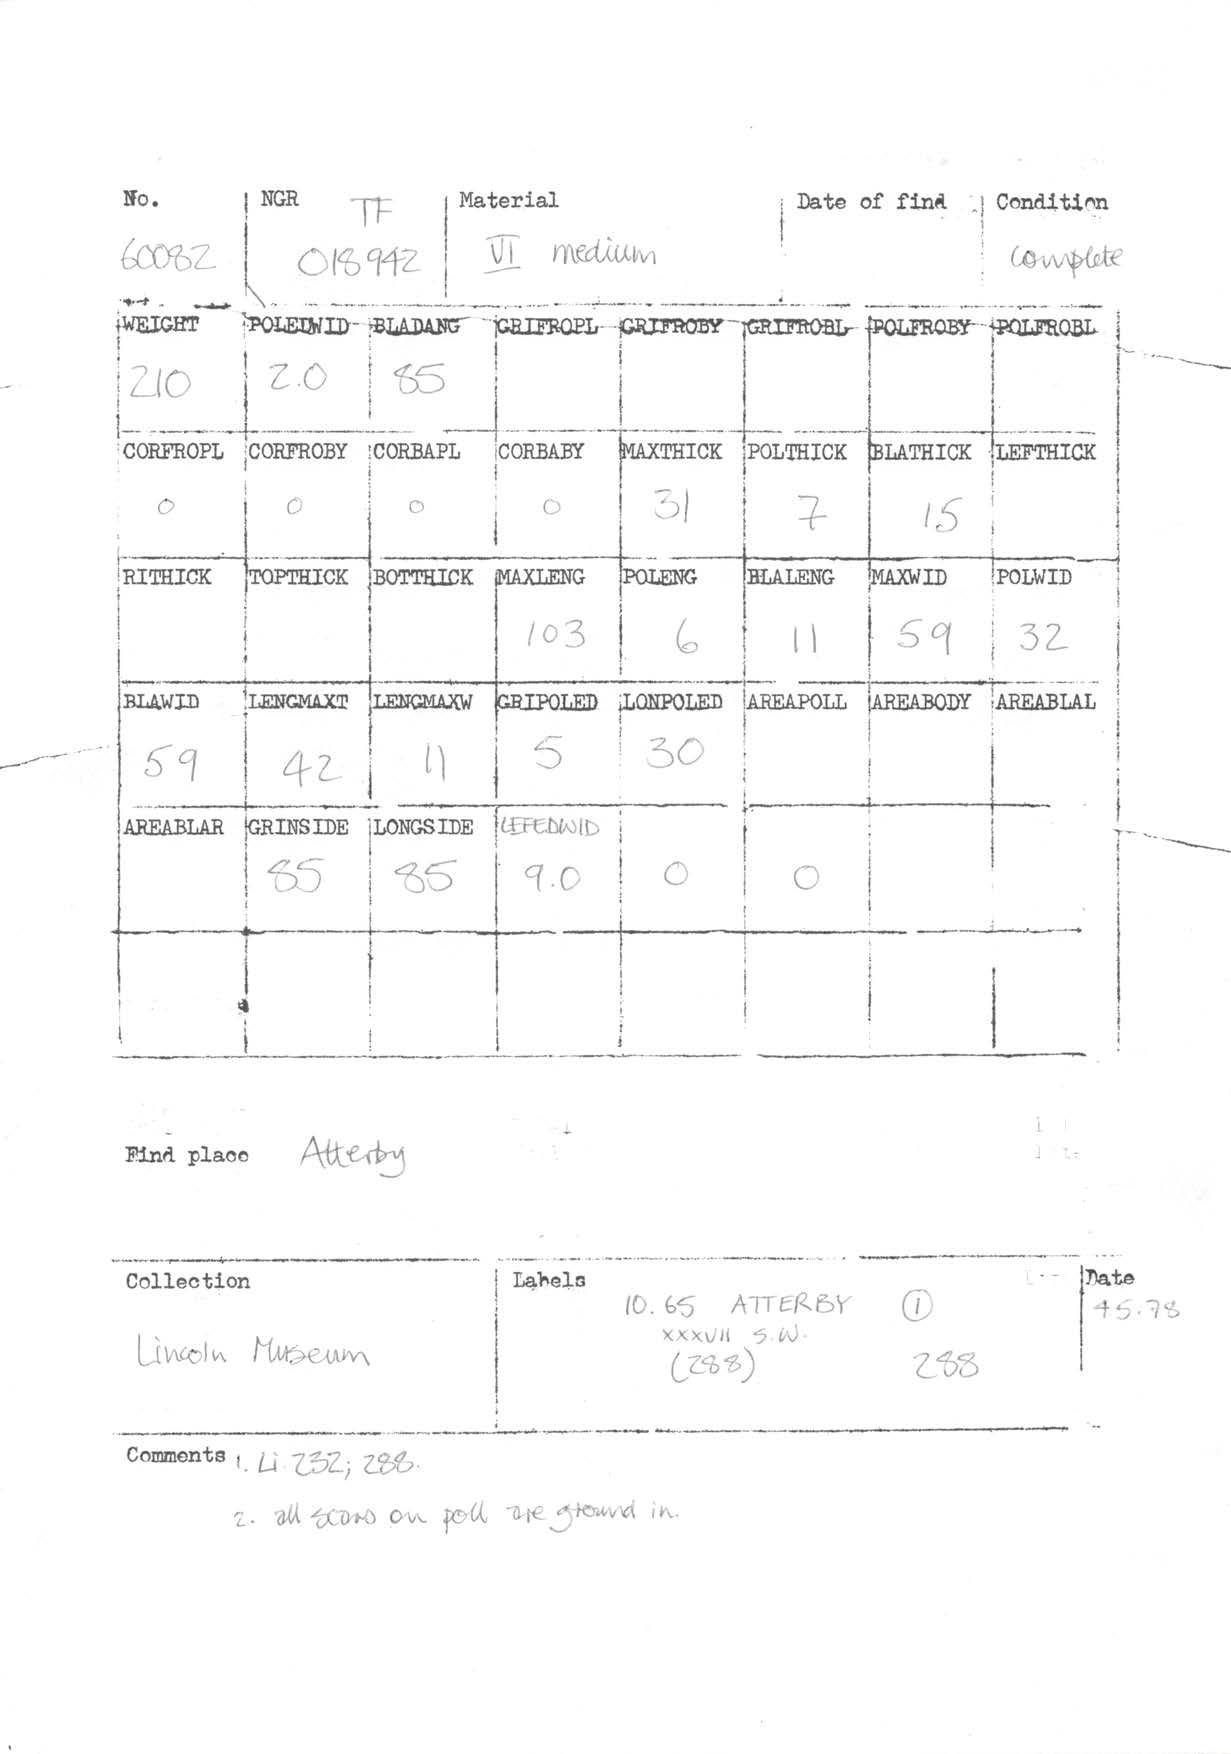 No. NGR TF Material Date of find Condition
60082 018942 VI medium complete
WEIGHT POLEDWID BLADANG GRIFROPL GRIFROBY GRIFROBL POLFROBY POLFROBL
210 2.0 85
CORFROPL CORFROBY CORBAPL CORBABY MAXTHICK POLTHICK BLATHICK LEFTHICK
0 0 0 0 31 7 15
RITHICK TOPTHICK BOTTHICK MAXLENG POLENG BLALENG MAXWID POLWID
103 6 11 59 32
BLAWID LENGMAXT LENGMAXW GRIPOLED LONPOLED AREAPOLL AREABODY AREABLAL
59 42 11 5 30
AREABLAR GRINSIDE LONGSIDE LEFEDWID
85 85 9.0 0 0
Find place Atterby
Collection Labels Date
10.65 ATTERBY 1 45.78
XXXVII S.W.
Lincoln Museum (288) 288
Comments 1. Li 232; 288.
2. all scars on poll are ground in.